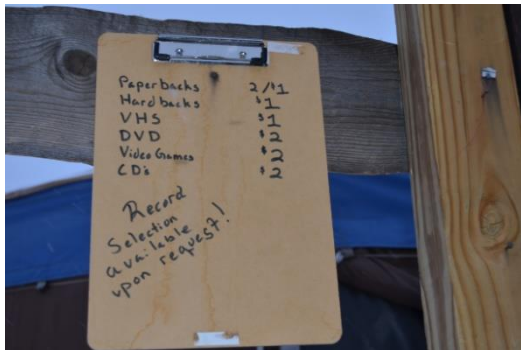 Paperbacks 2/$1
Hardbacks $1
VHS $1
DVD $2
Video Games $2
CD's $2
Record
Selection
available
upon request!